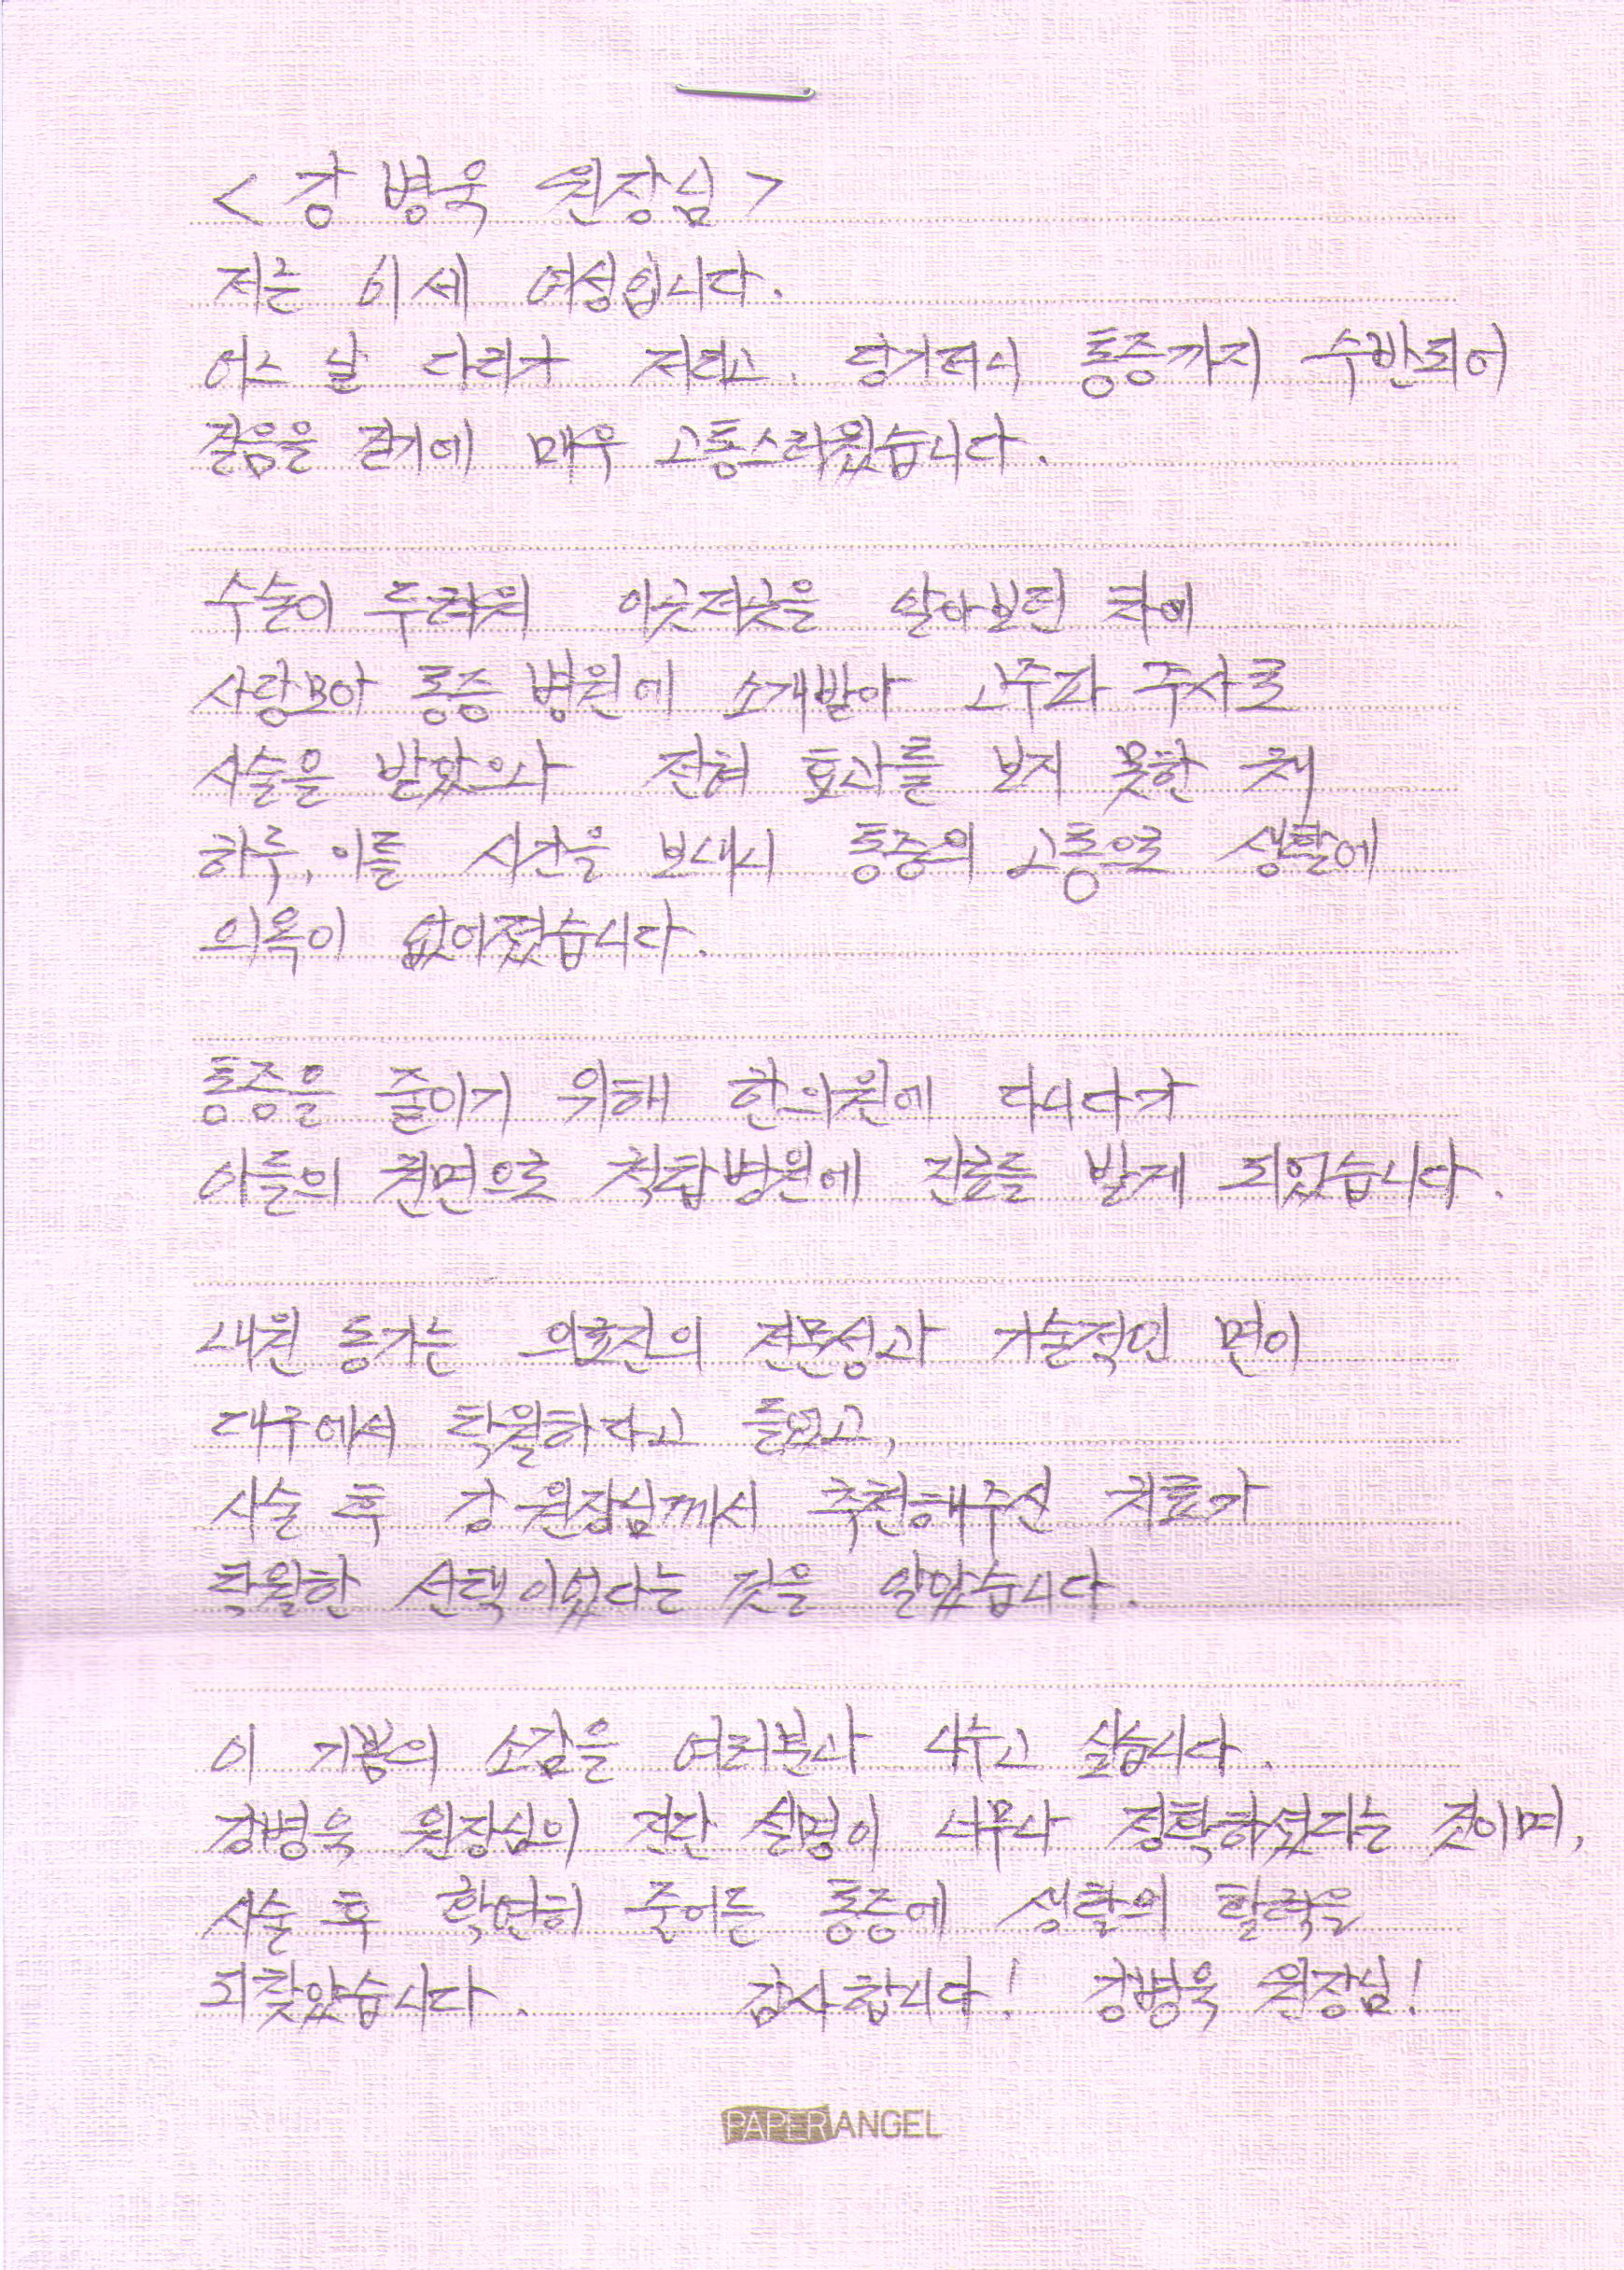 < 강병욱 원장님 >
저는 61세 여성입니다.
어느 날 다리가 저리고, 당기더니 통증까지 수반되어
걸음을 걷기에 매우 고통스러웠습니다.
수술이 두려워 이곳저곳을 알아보던 차에
사랑모아 통증 병원에 소개받아 고주파 주사로
시술을 받았으나 전혀 효과를 보지 못한 채
하루, 이틀 시간을 보내니 통증의 고통으로 생활에
의욕이 없어졌습니다.
통증을 줄이기 위해 한의원에 다니다가
아들의 권면으로 척탑병원에 진료를 받게 되었습니다.
내원 동기는 의료진의 전문성과 기술적인 면이
대구에서 탁월하다고 들었고,
시술 후 강 원장님께서 추천해주신 치료가
탁월한 선택이었다는 것을 알았습니다.
이 기쁨의 소감을 여러분과 나누고 싶습니다.
강병욱 원장님의 진단 설명이 너무나 정확하셨다는 것이며,
시술 후 확연히 줄어든 통증에 생활의 활력을
되찾았습니다. 감사합니다! 강병욱 원장님!
PAPER ANGEL